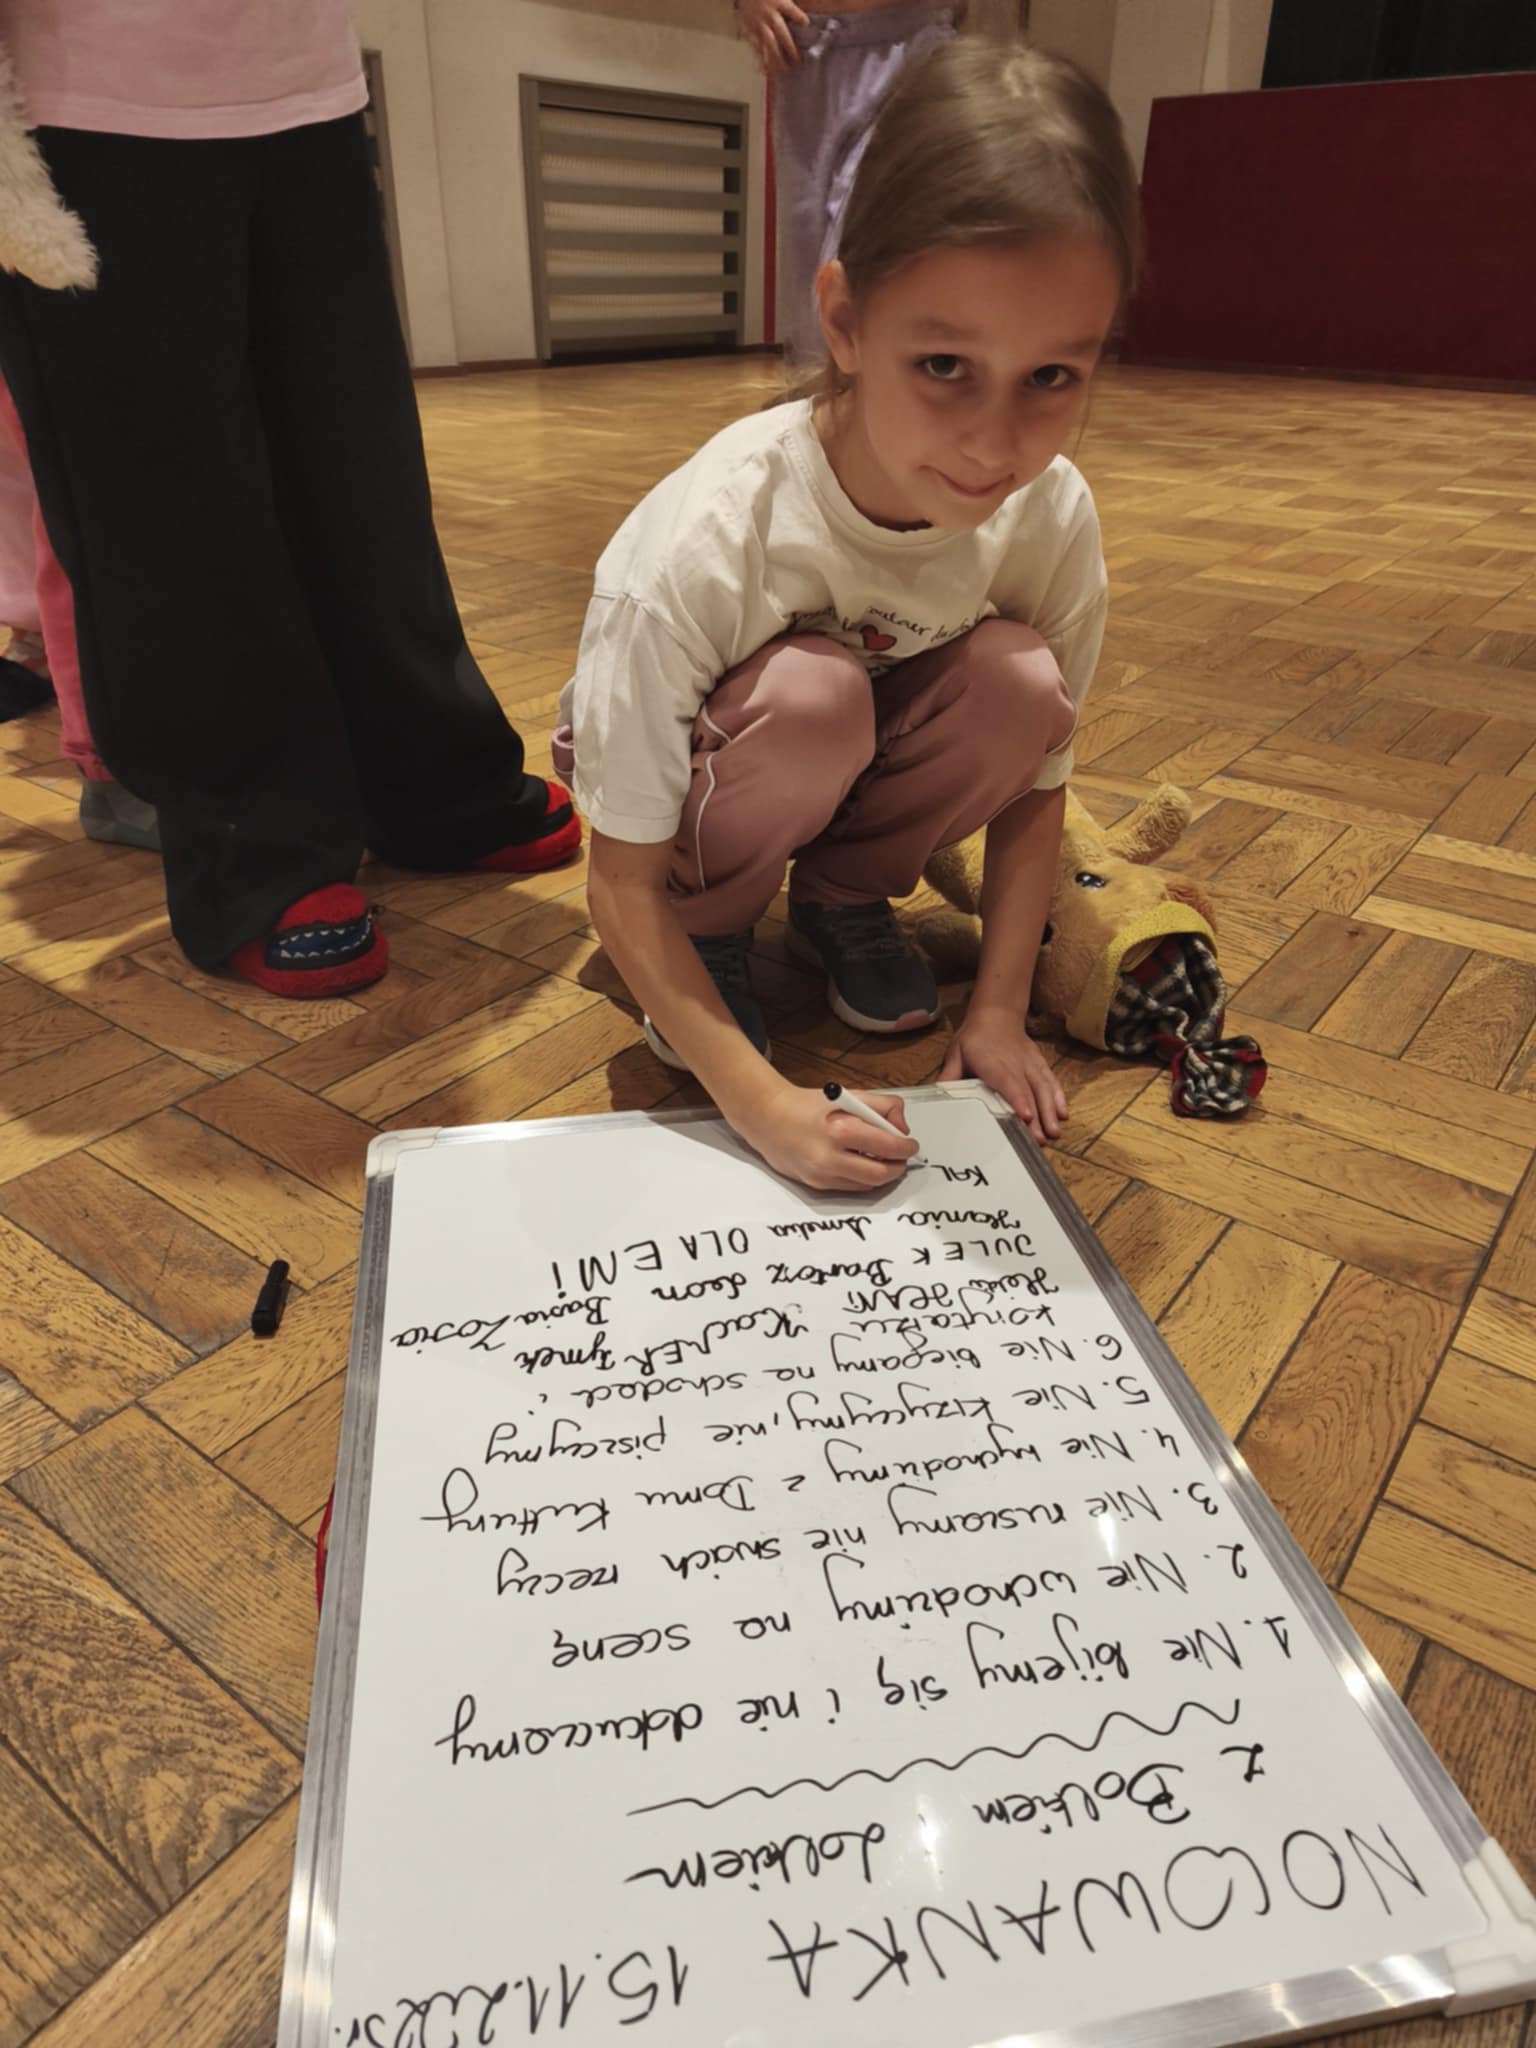 NOCOWANKA 15.11.2025r.
z Bolkiem Lolkiem
1. Nie bijemy się i nie dokuczamy
2. Nie wchodzimy na scenę
3. Nie ruszamy nie swoich rzeczy
4. Nie wychodzimy z Domu Kultury
5. Nie krzyczymy, nie piszczymy
6. Nie biegamy na schodach i
korytarzu KacPER Tymek
Basia Zosia
JULEK Bartosz Leon
Hania Amelia OLA EMI
KAL